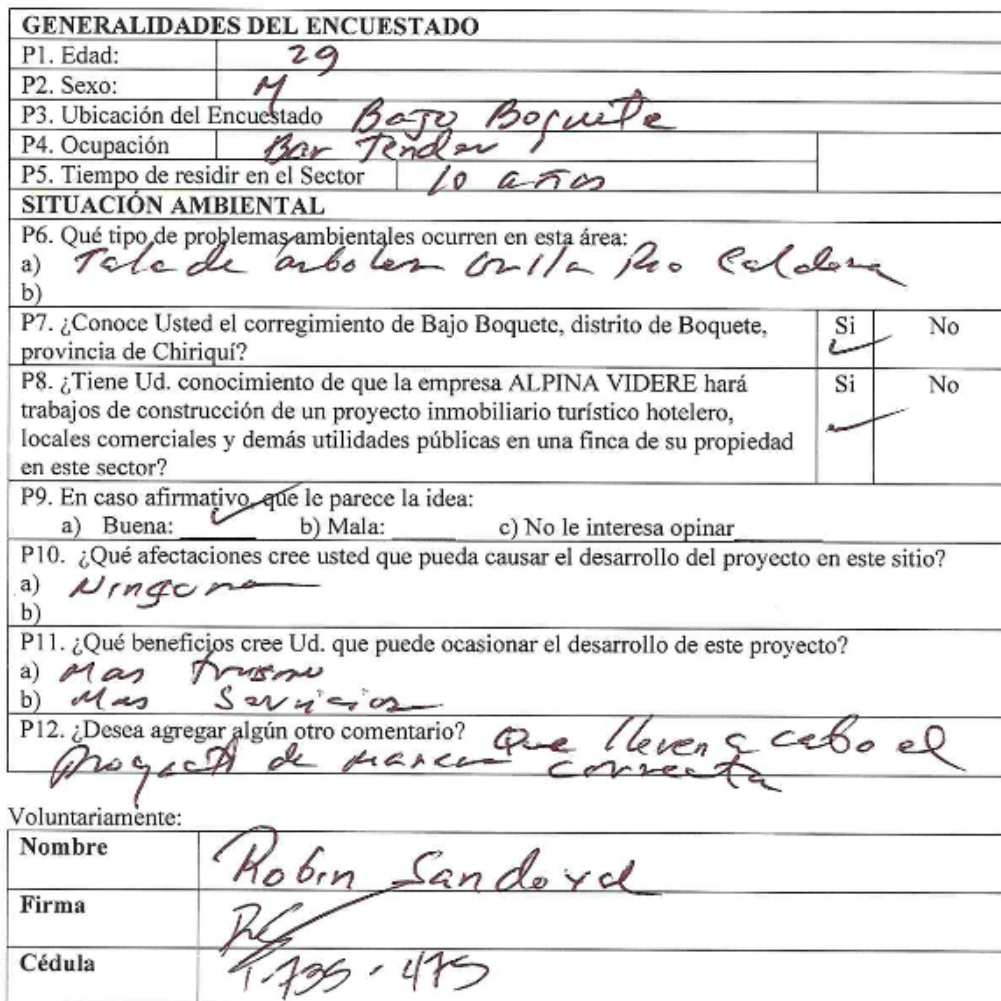 GENERALIDADES DEL ENCUESTADO
P1. Edad: 29
P2. Sexo: M
P3. Ubicación del Encuestado Bajo Boquete
P4. Ocupación Bar Tender
P5. Tiempo de residir en el Sector 10 años
SITUACIÓN AMBIENTAL
P6. Qué tipo de problemas ambientales ocurren en esta área:
a) Tala de arboles orilla Rio Caldera
b)
P7. ¿Conoce Usted el corregimiento de Bajo Boquete, distrito de Boquete, Si No
provincia de Chiriquí?
P8. ¿Tiene Ud. conocimiento de que la empresa ALPINA VIDERE hará Si No
trabajos de construcción de un proyecto inmobiliario turístico hotelero,
locales comerciales y demás utilidades públicas en una finca de su propiedad
en este sector?
P9. En caso afirmativo, que le parece la idea:
a) Buena: b) Mala: c) No le interesa opinar
P10. ¿Qué afectaciones cree usted que pueda causar el desarrollo del proyecto en este sitio?
a) Ninguna
b)
P11. ¿Qué beneficios cree Ud. que puede ocasionar el desarrollo de este proyecto?
a) Mas turismo
b) Mas Servicios
P12. ¿Desea agregar algún otro comentario? Que lleven a cabo el
proyecto de manera correcta
Voluntariamente:
Nombre Robin Sandoval
Firma
Cédula